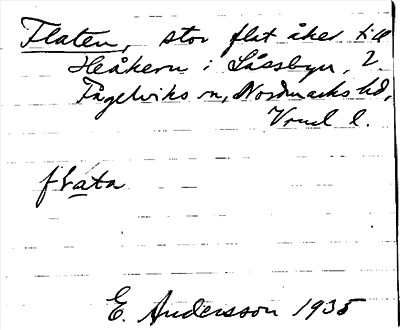 Flaten, stor flat åker till
Heåkern i Låssbyn, 2.
Fågelviks sn, Nordmarks hd,
Vrml l.
flata
E. Andersson 1935